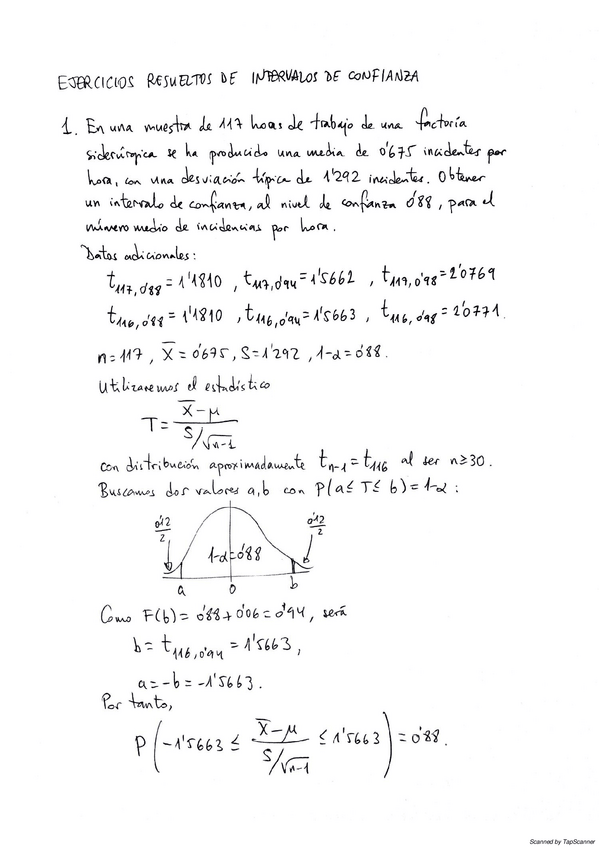 EJERCICIOS RESUELTOS DE INTERVALOS DE CONFIANZA
1. En una muestra de 117 horas de trabajo de una factoría
siderúrgica se ha producido una media de 0'675 incidentes por
hora, con una desviación típica de 1'292 incidentes. Obtener
un intervalo de confianza, al nivel de confianza 0'88, para el
número medio de incidencias por hora.
Datos adicionales:
t117,0'88 = 1'1810 , t117,0'94 = 1'5662 , t117,0'98 = 2'0769
t116,0'88 = 1'1810 , t116,0'94 = 1'5663 , t116,0'98 = 2'0771.
n = 117 , X̄ = 0'675 , S = 1'292 , 1-α = 0'88.
Utilizaremos el estadístico
T = (X̄ - μ) / (S/√n-1)
con distribución aproximadamente tn-1 = t116 al ser n ≥ 30.
Buscamos dos valores a, b con P(a ≤ T ≤ b) = 1-α :
0'12/2 0'12/2
1-α = 0'88
a 0 b
Como F(b) = 0'88 + 0'06 = 0'94, será
b = t116,0'94 = 1'5663 ,
a = -b = -1'5663 .
Por tanto,
P(-1'5663 ≤ (X̄ - μ) / (S/√n-1) ≤ 1'5663) = 0'88.
Scanned by TapScanner